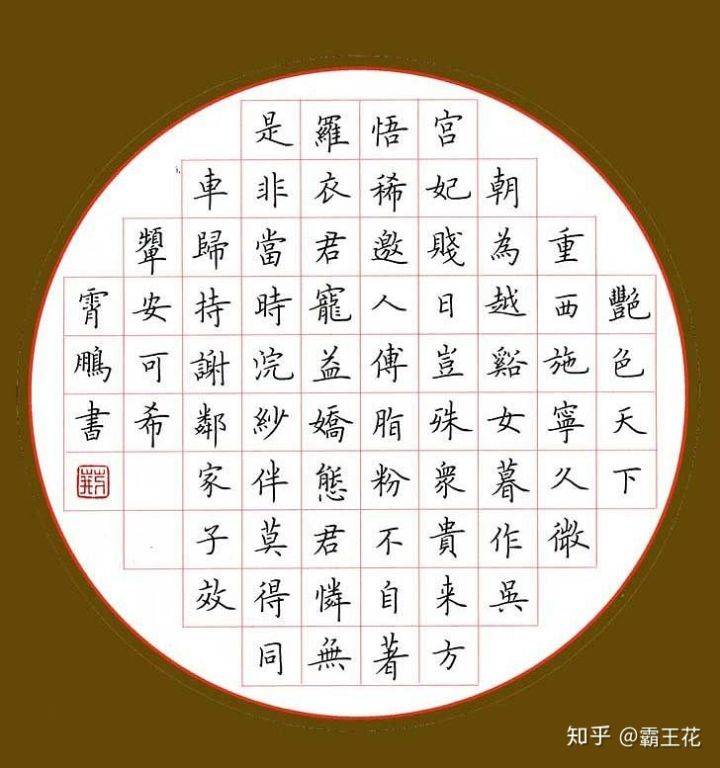 豔色天下
重西施寧久微
朝為越谿女暮作吳
宮妃賤日豈殊衆貴来方
悟稀邀人傅脂粉不自著
羅衣君寵益嬌態君憐無
是非當時浣紗伴莫得同
車歸持謝鄰家子效
顰安可希
霄鵬書
知乎 @霸王花